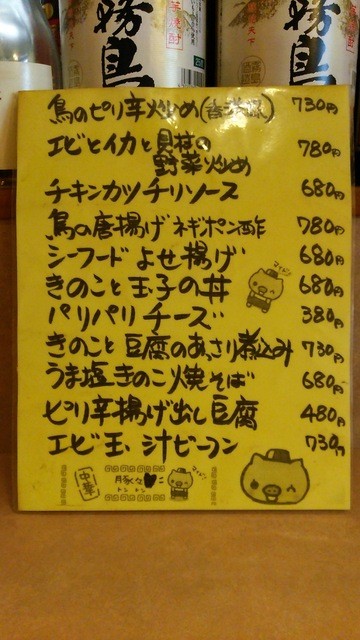 霧島
霧島
鳥のピリ辛炒め(香港風) 730円
エビとイカと貝柱の
野菜炒め 780円
チキンカツチリソース 680円
鳥の唐揚げネギポン酢 780円
シーフードよせ揚げ 680円
きのこと玉子の丼 680円
パリパリチーズ 380円
きのこと豆腐のあっさり煮込み 730円
うま塩きのこ焼そば 680円
ピリ辛揚げ出し豆腐 480円
エビ玉汁ビーフン 730円
中華
トントン